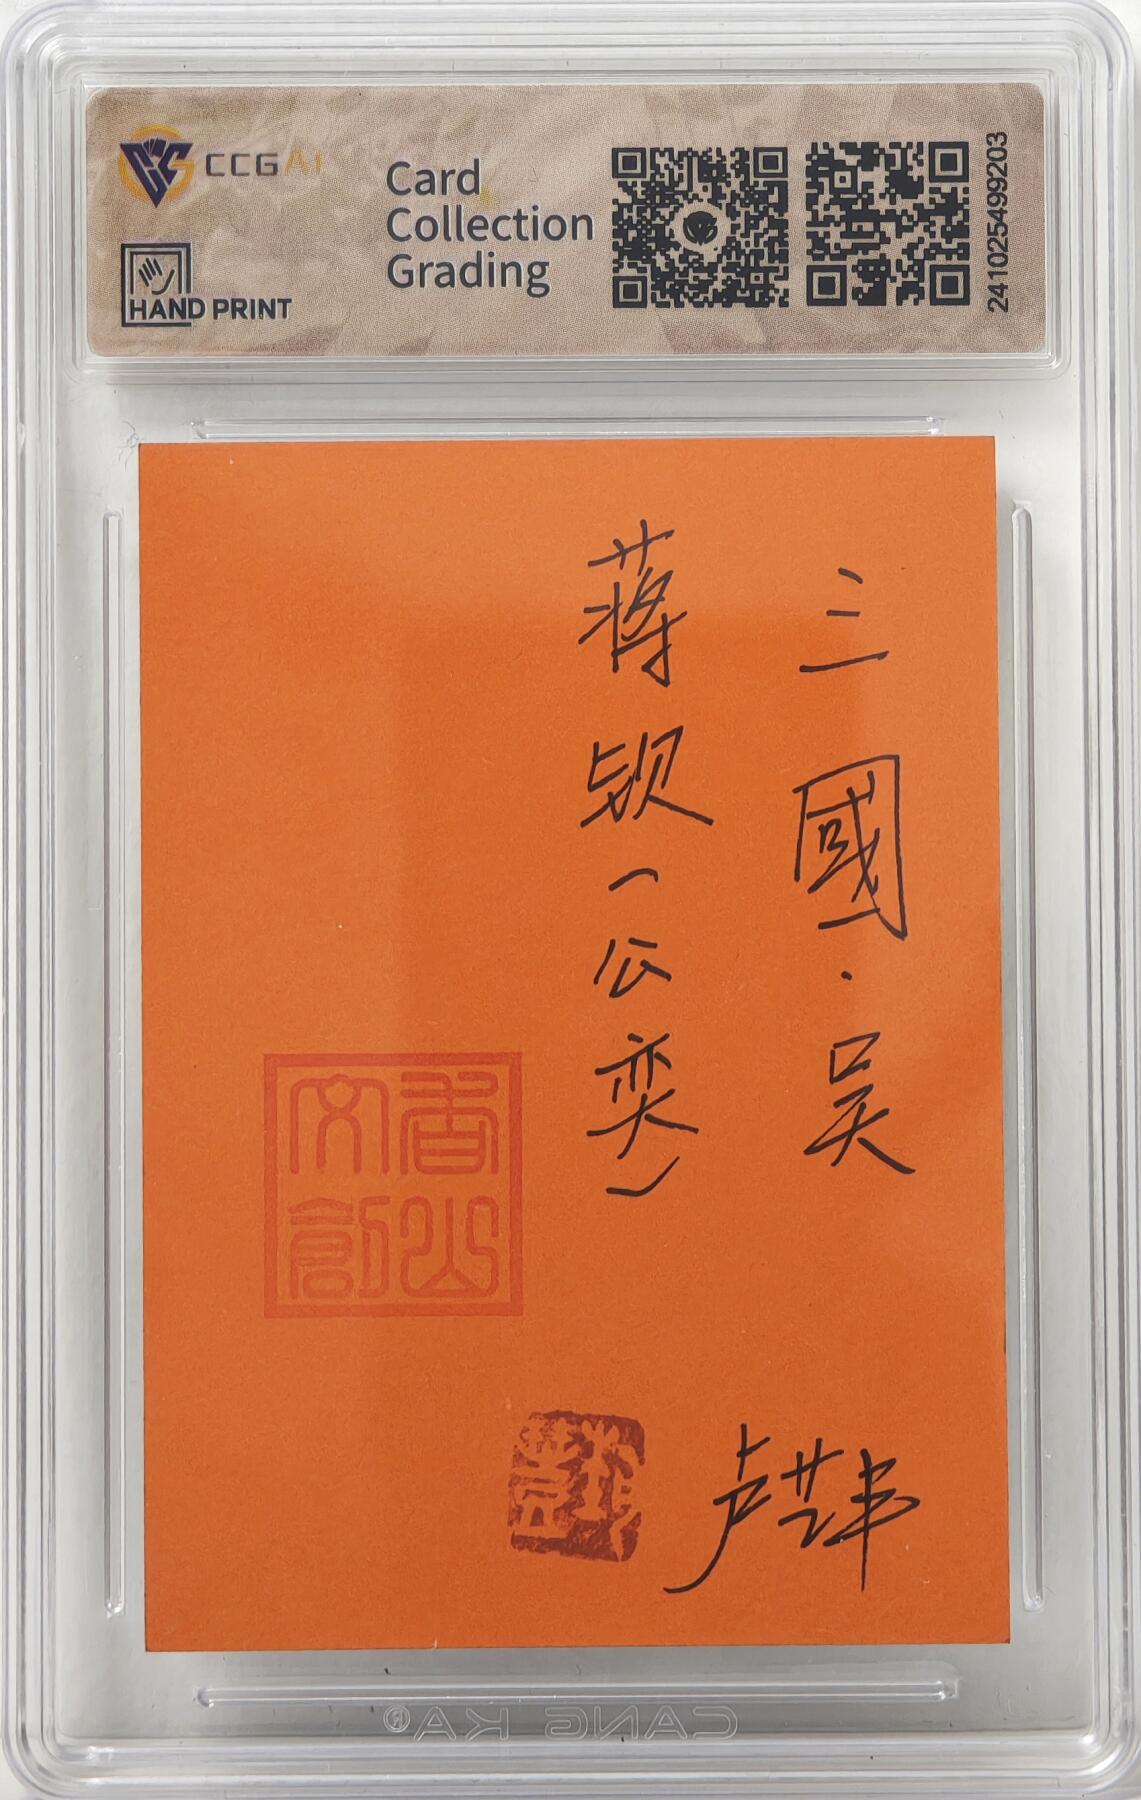 CCGAI
HAND PRINT
Card
Collection
Grading
241025499203
三國·吴
蒋钦(公奕)
香山
文創
CANG KA®